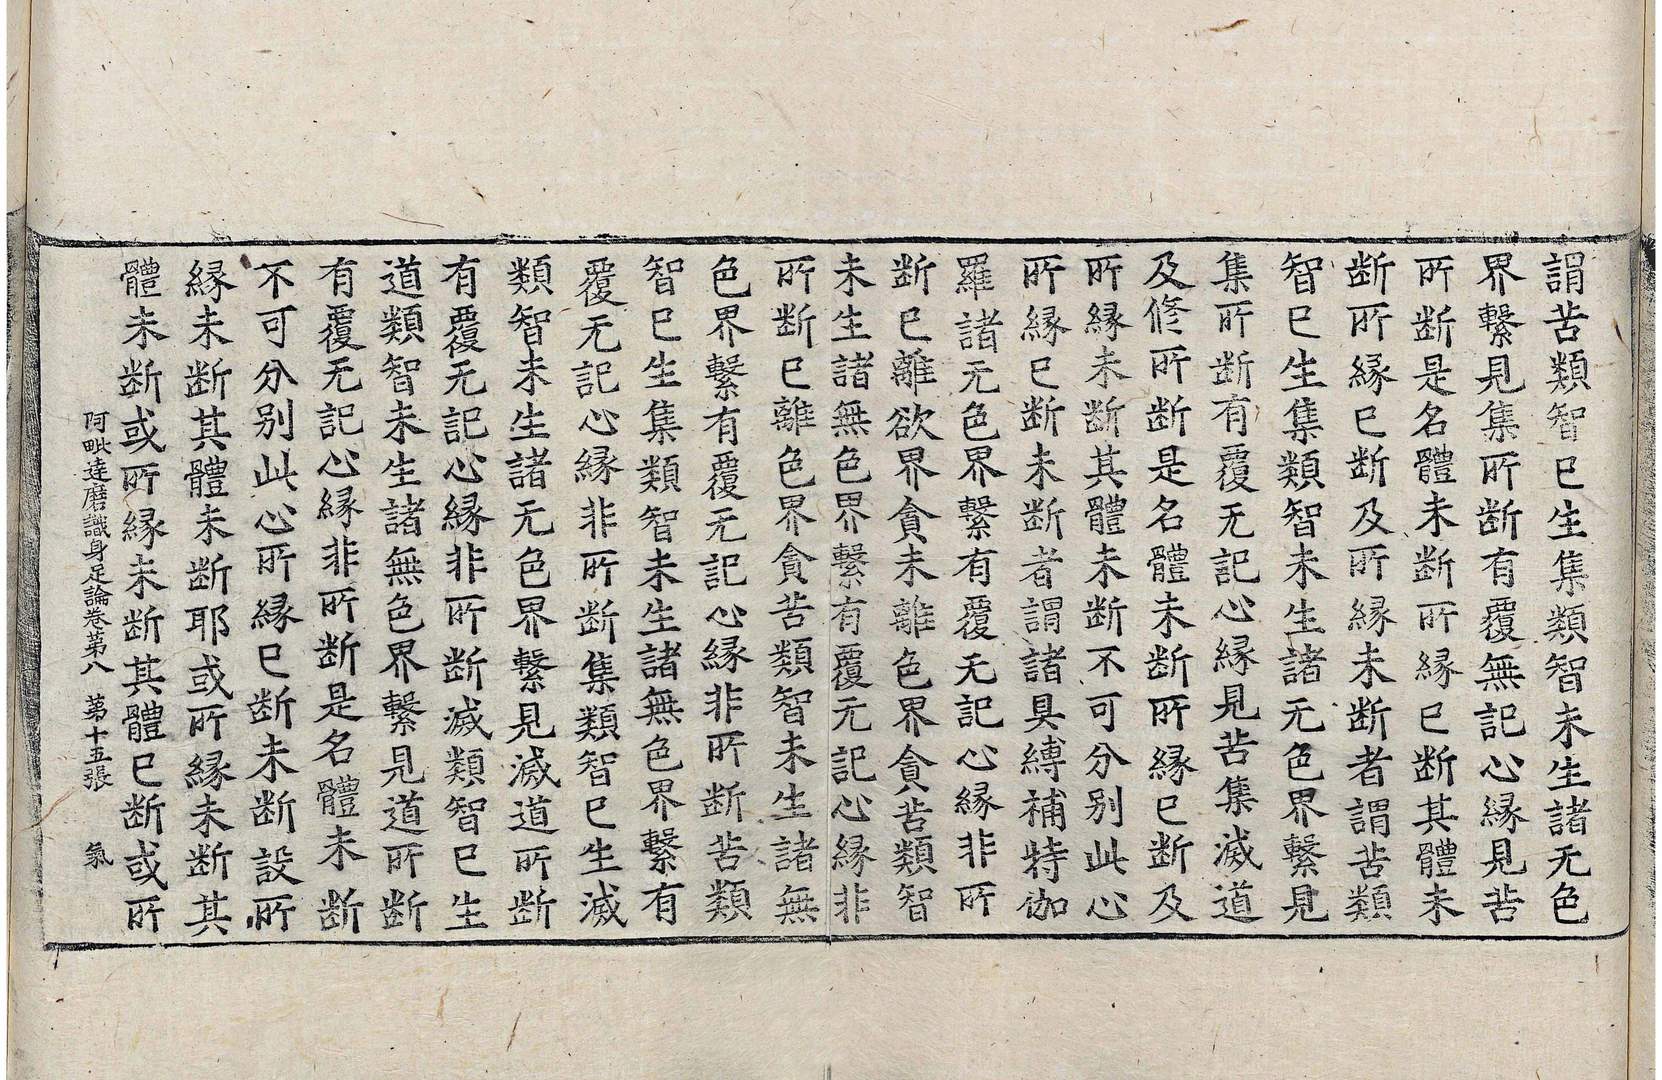 謂苦類智已生集類智未生諸无色
界繫見集所断有覆無記心縁見苦
所断是名體未断所縁已断其體未
断所縁已断及所縁未断者謂苦類
智已生集類智未生諸无色界繫見
集所断有覆无記心縁見苦集滅道
及修所断是名體未断所縁已断及
所縁未断其體未断不可分別此心
所縁已断未断者謂諸具縛補特伽
羅諸无色界繫有覆无記心縁非所
断已離欲界貪未離色界貪苦類智
未生諸無色界繫有覆无記心縁非
所断已離色界貪苦類智未生諸無
色界繫有覆无記心縁非所断苦類
智已生集類智未生諸無色界繫有
覆无記心縁非所断集類智已生滅
類智未生諸无色界繫見滅道所断
有覆无記心縁非所断滅類智已生
道類智未生諸無色界繫見道所断
有覆无記心縁非所断是名體未断
不可分別此心所縁已断未断設所
縁未断其體未断耶或所縁未断其
體未断或所縁未断其體已断或所
阿毗達磨識身足論卷第八　第十五張　氣